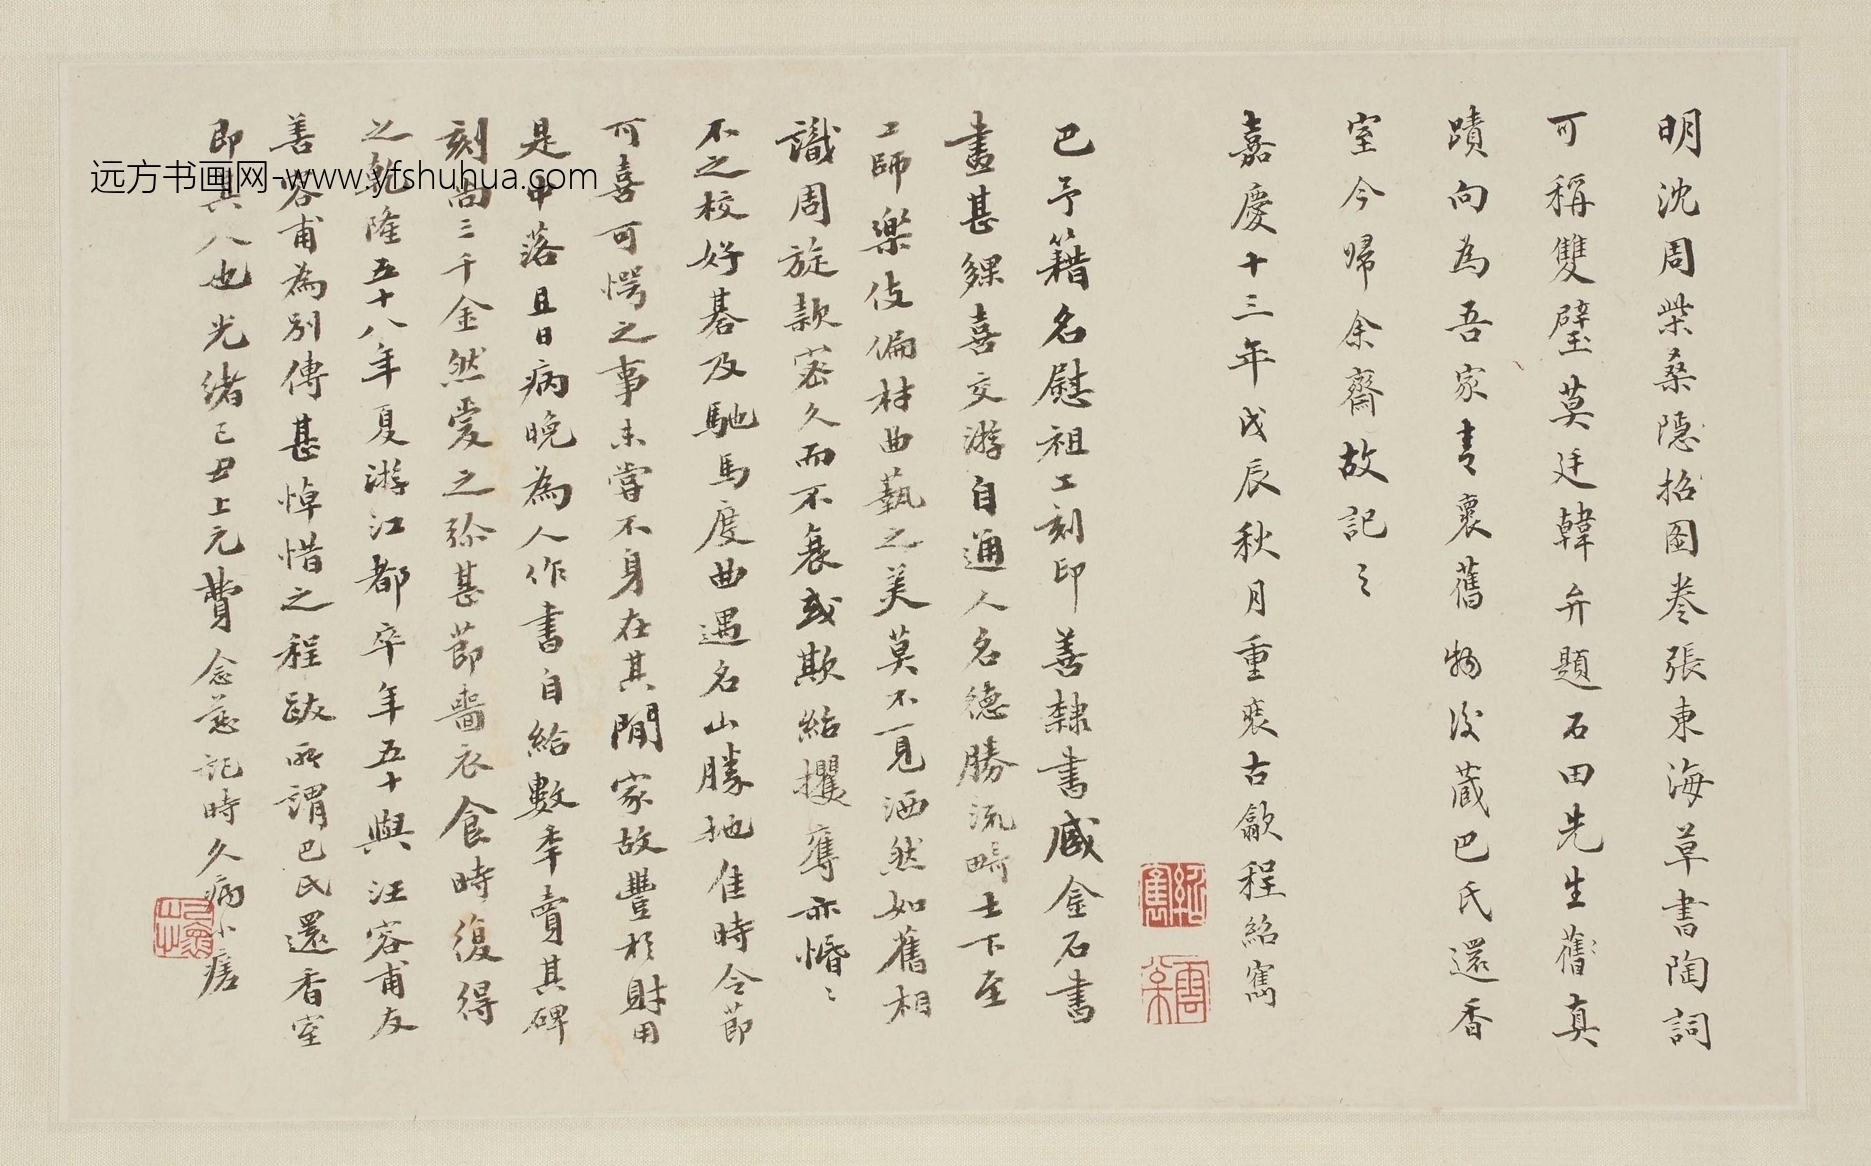 明沈周柴桑隐招圖卷張東海草書陶詞
可稱雙璧莫廷韓弁題石田先生舊真
蹟向為吾家青裏舊物後蔵巴氏還香
室今歸余齋故記之
嘉慶十三年戊辰秋月重裝古歙程紹寯
巴予籍名慰祖工刻印善隸書臧金石書
畫甚夥喜交游自通人名德勝流畸士下至
工師樂伎偏材曲藝之美莫不一見洒然如舊相
識周旋款密久而不衰或欺紿攫奪亦惛〻
不之校好碁及馳馬度曲遇名山勝地佳時令節
可喜可愕之事未嘗不身在其閒家故豐於財用
是中落且日病晚為人作書自給數年賣其碑
刻尚三千金然愛之彌甚節嗇衣食時復得
之乾隆五十八年夏游江都卒年五十與汪容甫友
善容甫為別傳甚悼惜之程跋所謂巴氏還香室
即其人也光緒己丑上元費念慈記時久病小痊
远方书画网-www.yfshuhua.com